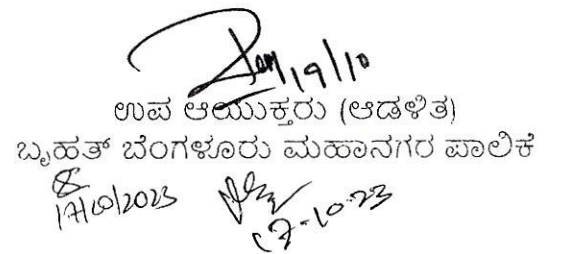 19/10
ಉಪ ಆಯುಕ್ತರು (ಆಡಳಿತ)
ಬೃಹತ್ ಬೆಂಗಳೂರು ಮಹಾನಗರ ಪಾಲಿಕೆ
17/10/2023 17-10-23